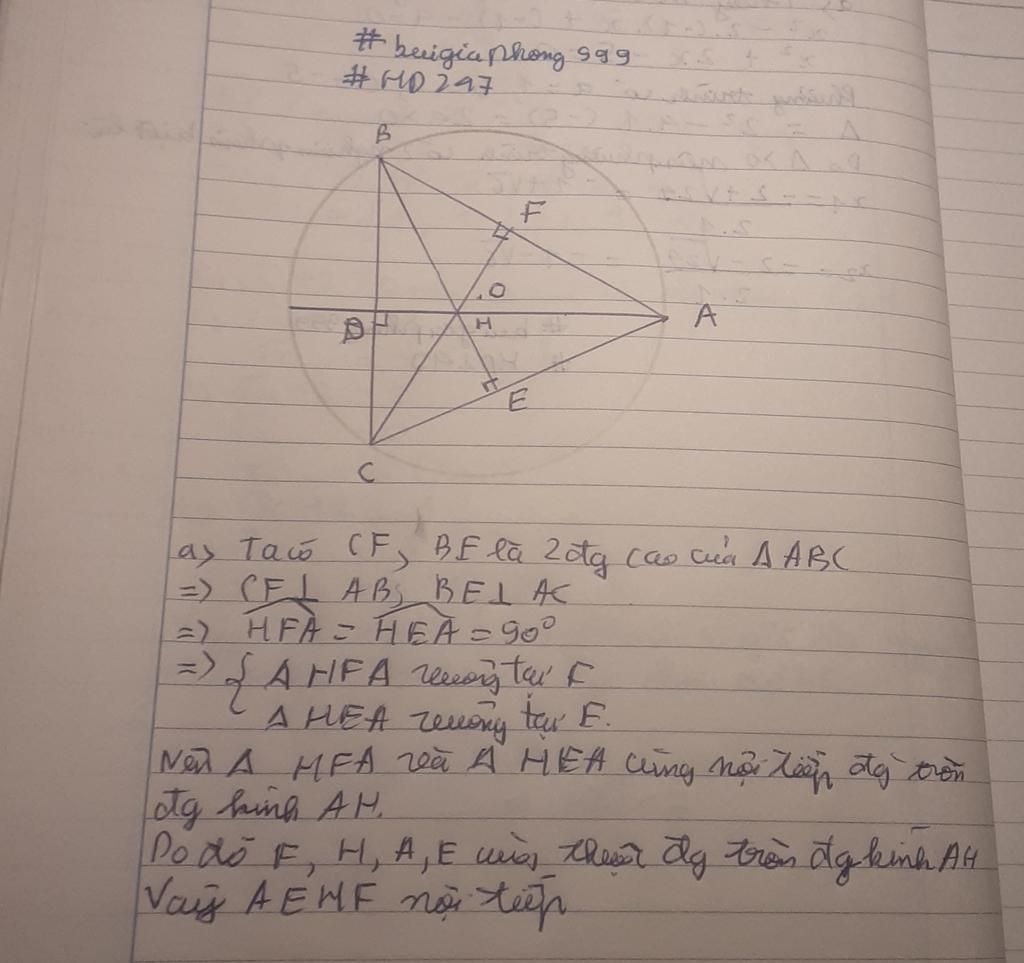 # buigiaphong999
# HD247
B
F
.O
D
H
A
E
C
a, Ta có CF, BE là 2 đg cao của Δ ABC
=> CF⊥ AB; BE⊥ AC
=> HFA = HEA = 90°
=> { Δ HFA vuông tại F
Δ HEA vuông tại E.
Nên Δ HFA và Δ HEA cùng nội tiếp đg tròn
đg kính AH.
Do đó F, H, A, E cùng thuộc đg tròn đg kính AH
Vậy AEHF nội tiếp